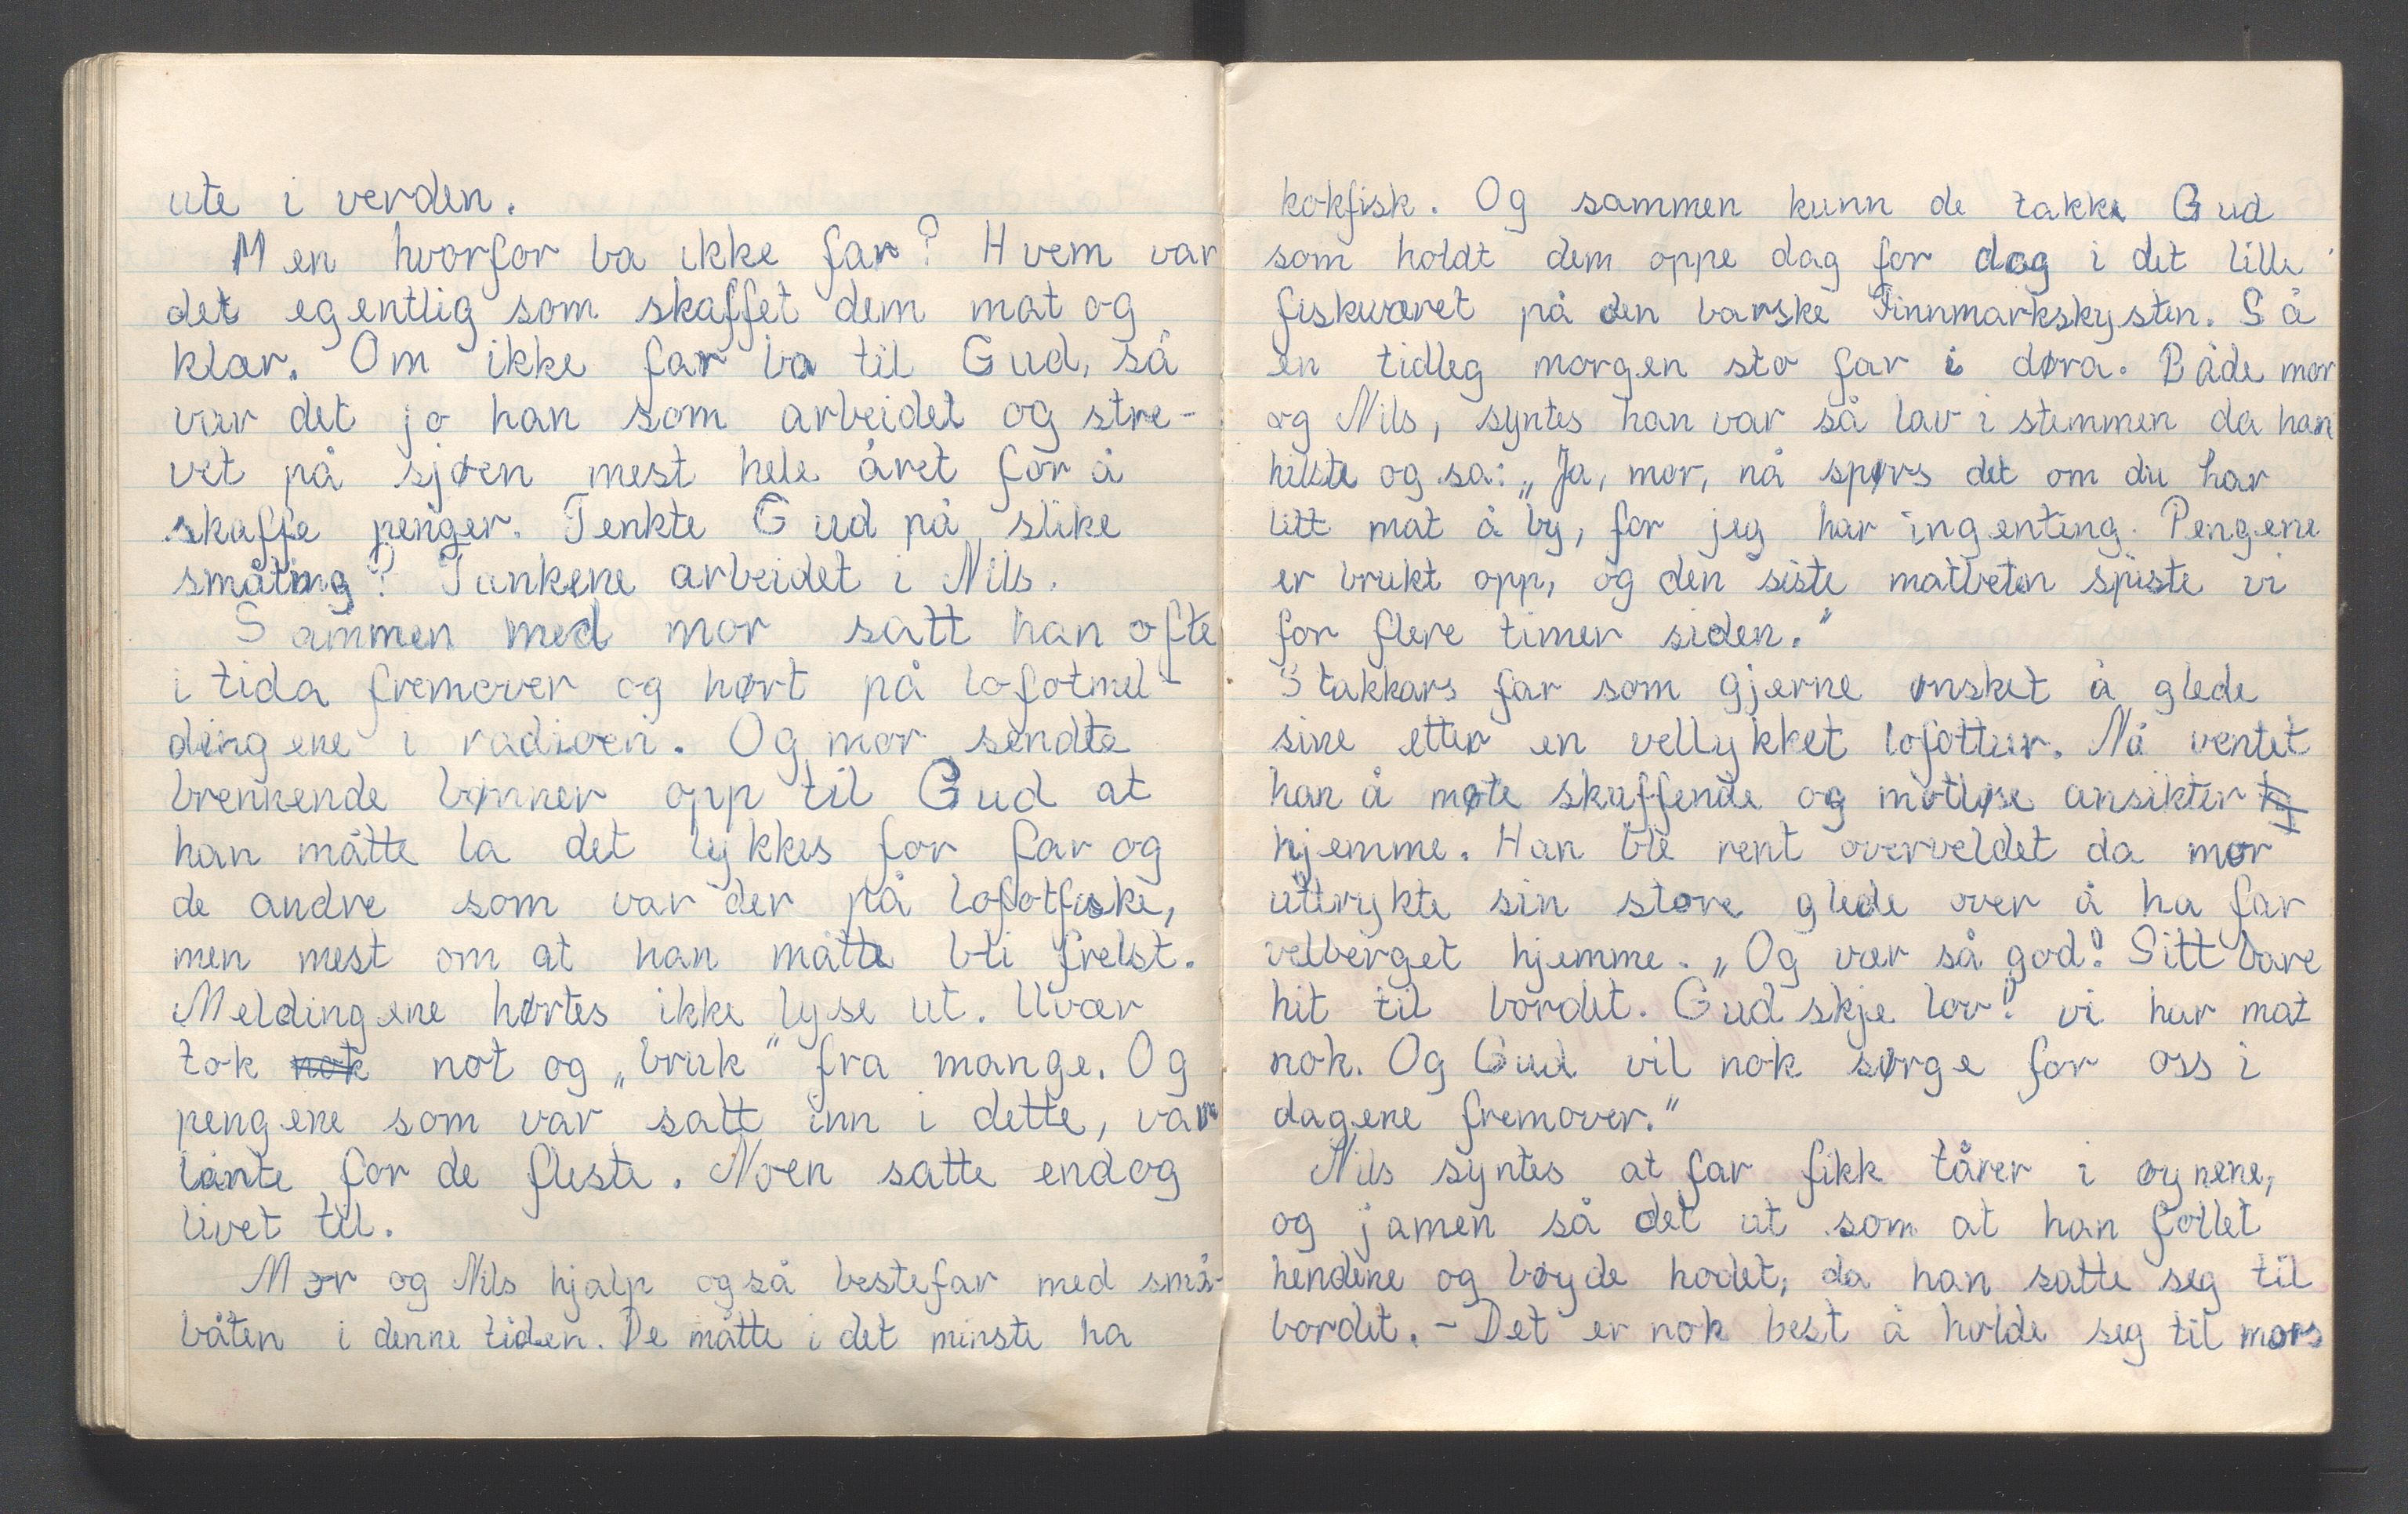 ute i verden.
Men hvorfor ba ikke far? Hvem var
det egentlig som skaffet dem mat og
klær. Om ikke far ba til Gud, så
var det jo han som arbeidet og stre-
vet på sjøen mest hele året for å
skaffe penger. Tenkte Gud på slike
småting? Tankene arbeidet i Nils.
Sammen med mor satt han ofte
i tida fremover og hørt på lofotmel-
dingene i radioen. Og mor sendte
brennende bønner opp til Gud at
han måtte la det lykkes for far og
de andre som var der på lofotfiske,
men mest om at han måtte bli frelst.
Meldingene hørtes ikke lyse ut. Uvær
tok nok not og „bruk" fra mange. Og
pengene som var satt inn i dette, var
lånte for de fleste. Noen satte endog
livet til.
Mor og Nils hjalp også bestefar med små-
båten i denne tiden. De måtte i det minste ha
kokfisk. Og sammen kunn de takke Gud
som holdt dem oppe dag for dag i det lille
fiskeværet på den barske Finnmarkskysten. Så
en tidleg morgen sto far i døra. Både mor
og Nils, syntes han var så lav i stemmen da han
hilste og sa: „Ja, mor, nå spørs det om du har
litt mat å by, for jeg har ingenting. Pengene
er brukt opp, og den siste matbeten spiste vi
for flere timer siden."
Stakkars far som gjerne ønsket å glede
sine etter en vellykket lofottur. Nå ventet
han å møte skuffende og motløse ansikter
hjemme. Han ble rent overveldet da mor
uttrykte sin store glede over å ha far
velberget hjemme. „Og vær så god! Sitt bare
hit til bordet. Gud skje lov! vi har mat
nok. Og Gud vil nok sørge for oss i
dagene fremover."
Nils syntes at far fikk tårer i øynene,
og jamen så det ut som at han follet
hendene og bøyde hodet, da han satte seg til
bordet. - Det er nok best å holde seg til mors